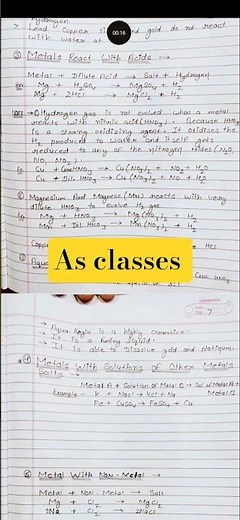 Hydrogen
Lead Copper and gold do not react
with water at
00:16
③ Metals React with Acids →
Metal + Dilute Acid → Salt + Hydrogen
Mg + H₂SO₄ → MgSO₄ + H₂
Mg + 2HCl → MgCl₂ + H₂
→ Hydrogen gas is not evolved when a metal
reacts with nitric acid (HNO₃). Because HNO₃
is a strong oxidizing agent. It oxidises the
H₂ produced to water and itself gets
reduced to any of the nitrogen oxides (N₂O,
NO, NO₂).
Eg Cu + Conc HNO₃ → Cu(NO₃)₂ + NO₂ + H₂O
Cu + Dil. HNO₃ → Cu(NO₃)₂ + NO + H₂O
Magnesium And Manganese (Mn) reacts with very
dilute HNO₃ to evolve H₂ gas
Eg Mg + HNO₃ → Mg(NO₃)₂ + H₂
Mn + Dil. HNO₃ → Mn(NO₃)₂ + H₂
Copp HCl
Aqua Conc. HNO₃
As classes
7
→ Aqua Regia is a highly corrosive.
→ It is a fuming liquid.
→ It is able to dissolve gold and platinum.
④ Metals With Solutions of Other Metals
Salts
Metal A + Solution of Metal B → Sol. of Metal A +
Metal B
Example → K + NaCl → KCl + Na
Fe + CuSO₄ → FeSO₄ + Cu
Metal With Non-Metal →
Metal + Non-Metal → Salt
Mg + Cl₂ → MgCl₂
2Na + Cl₂ → 2NaCl